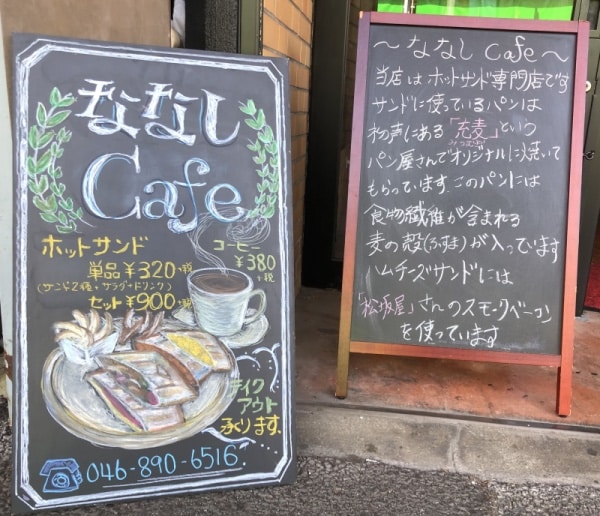 ななし
Cafe
ホットサンド
単品¥320+税
(サンド2種+サラダ+ドリンク)
セット¥900+税
コーヒー
¥380
+税
テイク
アウト
承ります。
046-890-6516
～ななし Cafe～
当店はホットサンド専門店です
サンドに使っているパンは
初声にある「充麦」という
みつむぎ
パン屋さんでオリジナルに焼いて
もらっています。このパンには
食物繊維が含まれる
麦の殻(ふすま)が入っています
ハムチーズサンドには
「松坂屋」さんのスモークベーコン
を使っています